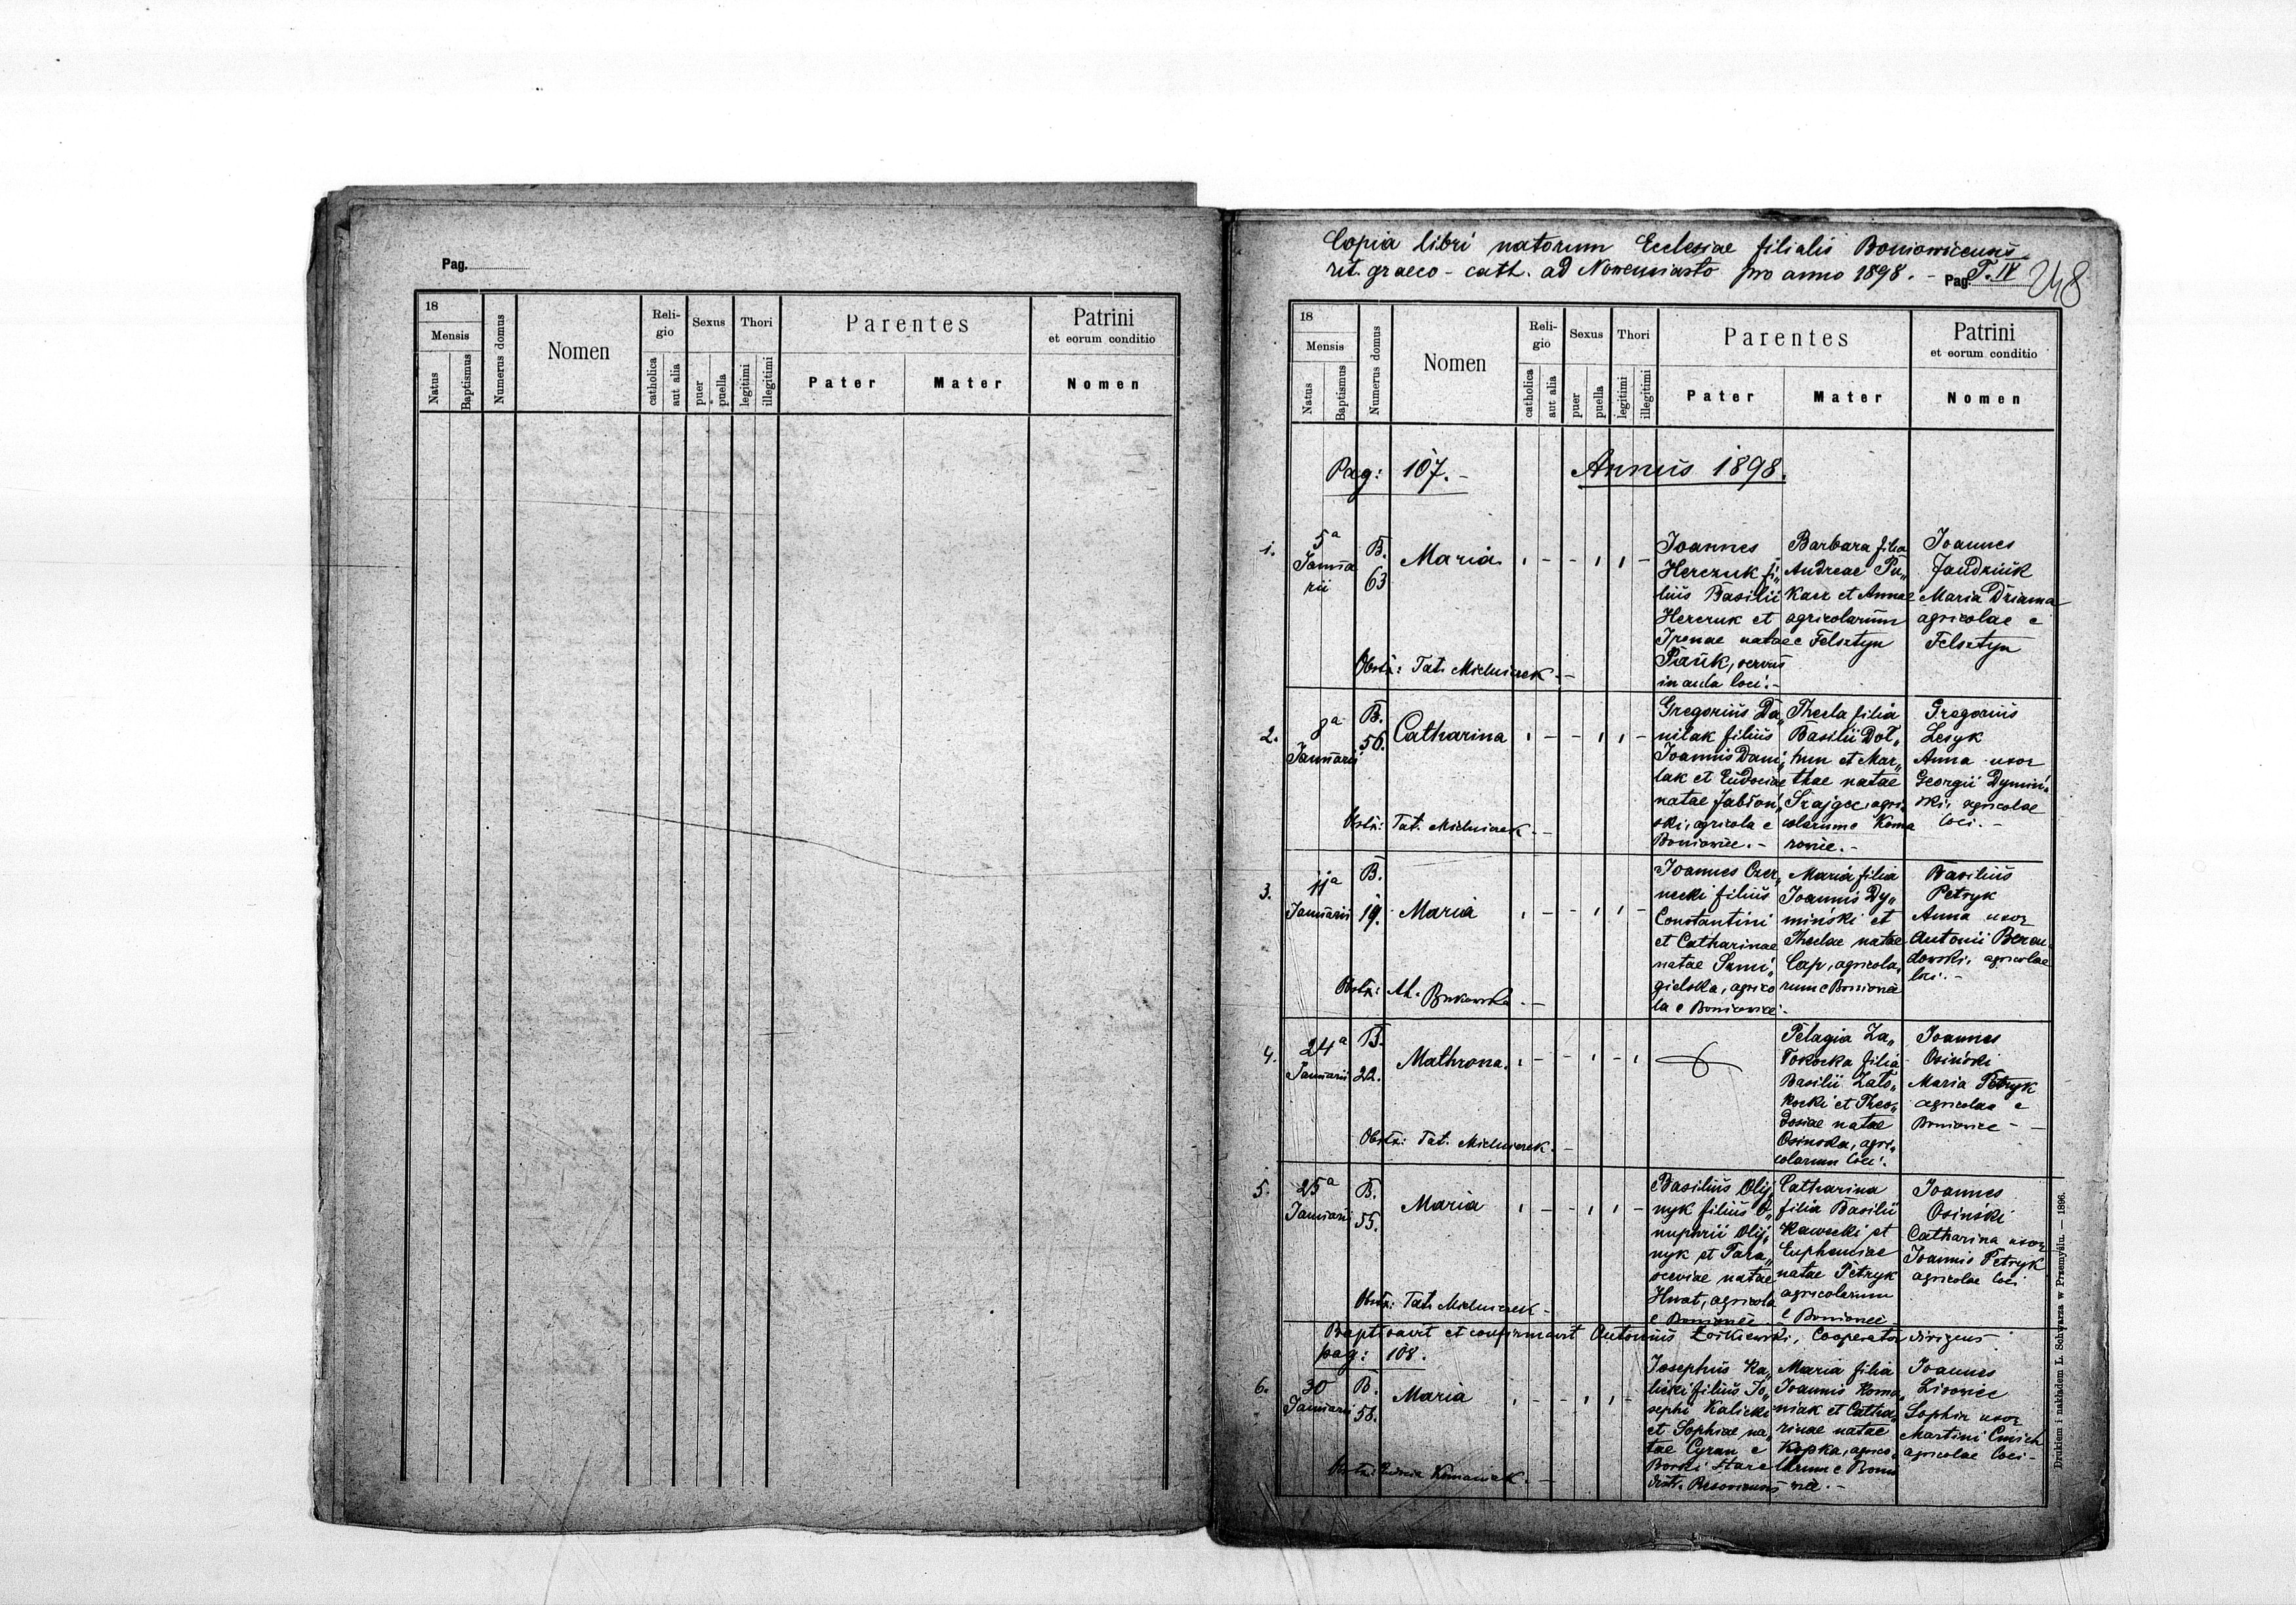 Pag.
18
Mensis
Natus
Baptismus
Numerus domus
Nomen
Reli-
gio
catholica
aut alia
Sexus
puer
puella
Thori
legitimi
illegitimi
Parentes
Pater
Mater
Patrini
et eorum conditio
Nomen
Copia libri natorum Ecclesiae filialis Boniowicensis
rit. graeco - cath. ad Nowemiasto pro anno 1898. -
Pag. T. IV
248
18
Mensis
Natus
Baptismus
Numerus domus
Nomen
Reli-
gio
catholica
aut alia
Sexus
puer
puella
Thori
legitimi
illegitimi
Parentes
Pater
Mater
Patrini
et eorum conditio
Nomen
Pag: 107. -
Annus 1898.
1.
5a
Janua
rii
B.
63
Maria
Joannes
Herczuk fi„
lius Basilii
Herczuk et
Irenae natae
Pauk, servus
in aula loci. -
Barbara filia
Andreae Pu„
karz et Annae
agricolarum
e Felsztyn
Joannes
Jaudziuk
Maria Dziama
agricolae e
Felsztyn
Obstx: Tat. Mielniczek. -
2.
8a
Januarii
B.
56.
Catharina
Gregorius Da„
nilak filius
Joannis Dani„
lak et Eudociae
natae Jabłoń„
ski, agricola e
Boniowice. -
Thecla filia
Basilii Doł„
hun et Mar„
thae natae
Szajgec, agri„
colarum e Koma
rowice. -
Gregorius
Lesyk
Anna uxor
Georgii Dymiń„
ski, agricolae
loci. -
Obstx: Tat. Mielniczek. -
3.
11a
Januarii
B.
19.
Maria
Joannes Czer„
necki filius
Constantini
et Catharinae
natae Śmi„
gielska, agrico
la e Boniowice. -
Maria filia
Joannis Dy„
miński et
Theclae natae
Cap, agricola„
rum e Boniowice
Basilius
Petryk
Anna uxor
Antonii Beran„
dowski, agricolae
loci. -
Obstx: M. Bukowska. -
4.
24a
Januarii
B.
22.
Mathrona.
Pelagia Za„
tokocka filia
Basilii Zato„
kocki et Theo„
dosiae natae
Osinska, agri„
colarum loci.
Joannes
Osiński
Maria Petryk
agricolae e
Boniowice -
Obstx: Tat. Mielniczek. -
5.
25a
Januarii
B.
55.
Maria
Basilius Olij„
nyk filius O„
nuphrii Olij„
nyk et Para„
sceviae natae
Hnat, agricola
e Boniowice
Catharina
filia Basilii
Kawecki et
Euphemiae
natae Petryk
agricolarum
e Boniowice
Joannes
Osiński
Catharina uxor
Joannis Petryk
agricolae loci
Obstx: Tat. Mielniczek -
Baptisavit et confirmavit Antonius Żołkiewski, Cooperator dirigens
pag: 108.
6.
30
Januarii
B.
58.
Maria
Josephus Ka„
licki filius Jo„
sephi Kalicki
et Sophiae na„
tae Cyran e
Borki stare
distr. Rzeszoviensis
Maria filia
Joannis Koma„
niak et Catha„
rinae natae
Kopka, agrico„
larum e Bonio
wice. -
Joannes
Lisowiec
Sophia uxor
Martini Cmich
agricolae loci -
Komaniak. -
Drukiem i nakładem L. Schwarza w Przemyślu. — 1896.